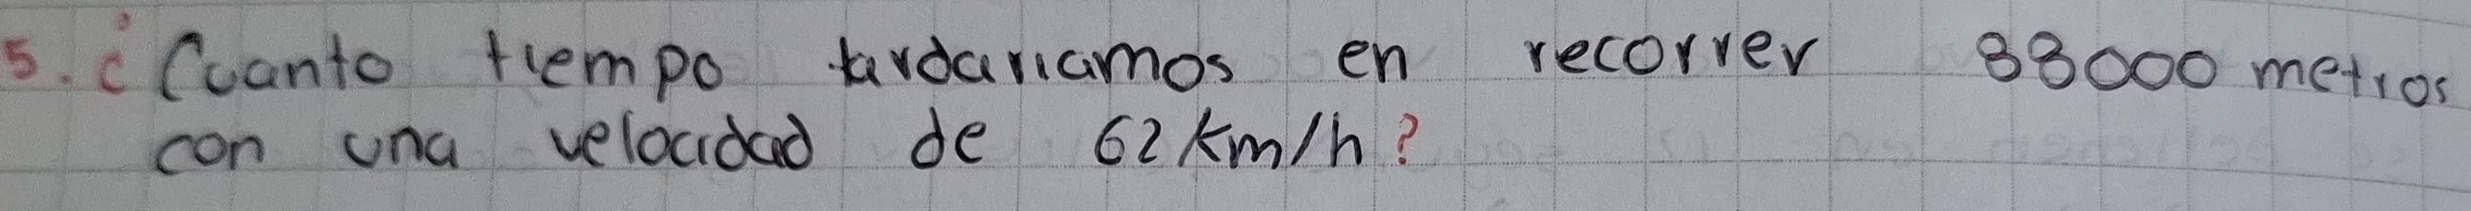 5. ¿Cuanto tiempo tardariamos en recorrer 88000 metros
con una velocidad de 62 km/h?